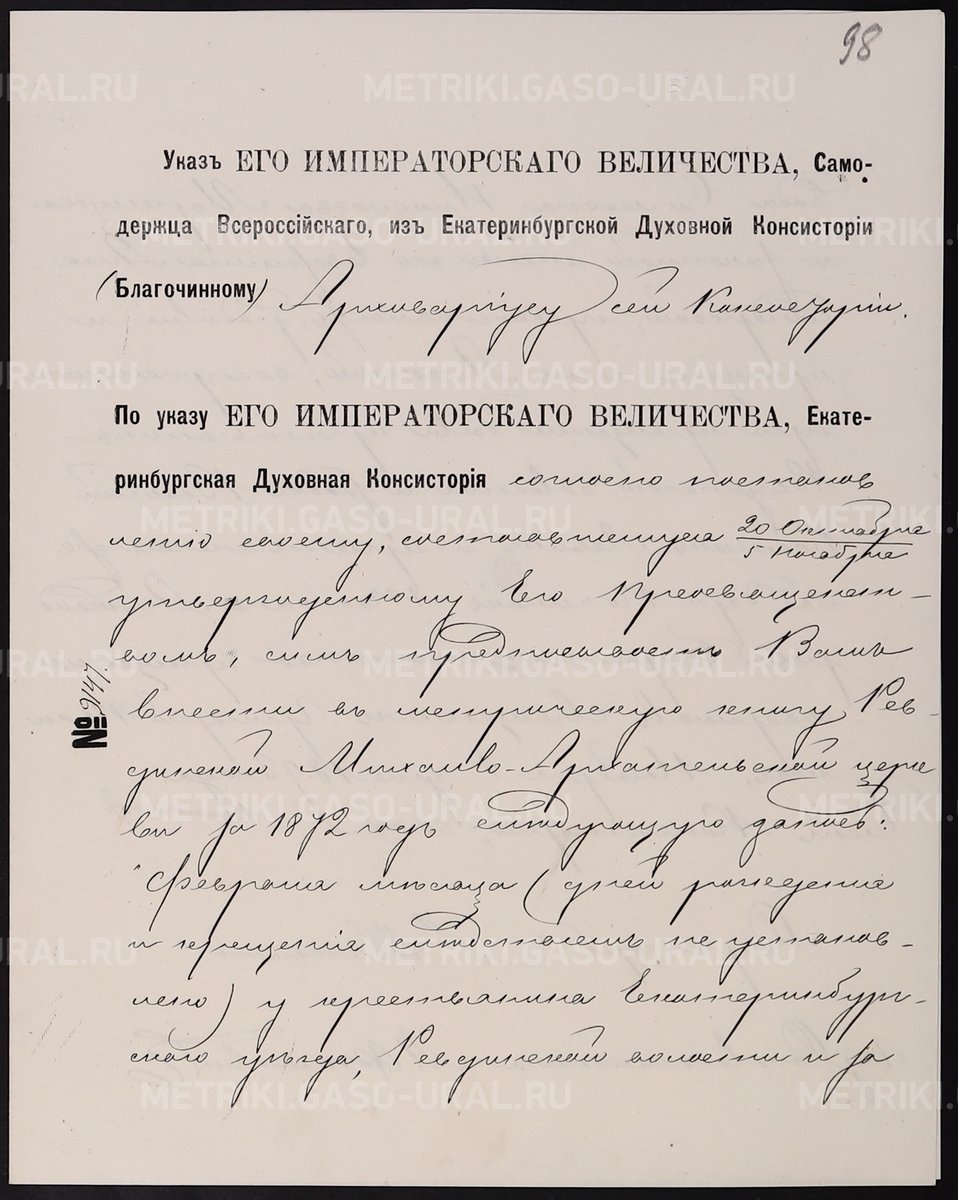 98
Указъ ЕГО ИМПЕРАТОРСКАГО ВЕЛИЧЕСТВА, Само-
держца Всероссійскаго, изъ Екатеринбургской Духовной Консисторіи
(Благочинному) Архиваріусу сей Консисторіи.
По указу ЕГО ИМПЕРАТОРСКАГО ВЕЛИЧЕСТВА, Екате-
ринбургская Духовная Консисторія согласно постанов
ленію своему, состоявшемуся 20 Октября
5 Ноября
утвержденному Его Преосвященст-
вомъ, симъ предписываетъ Вамъ
№ 9147.
внести въ метрическую книгу Рев-
динской Михаило-Архангельской церк
ви за 1872 годъ следующую запись:
"Февраля мѣсяца (дней рожденія
и крещенія следствіемъ не установ-
лено) у крестьянина Екатеринбург-
скаго уѣзда, Ревдинской волости и за
METRIKI.GASO-URAL.RU